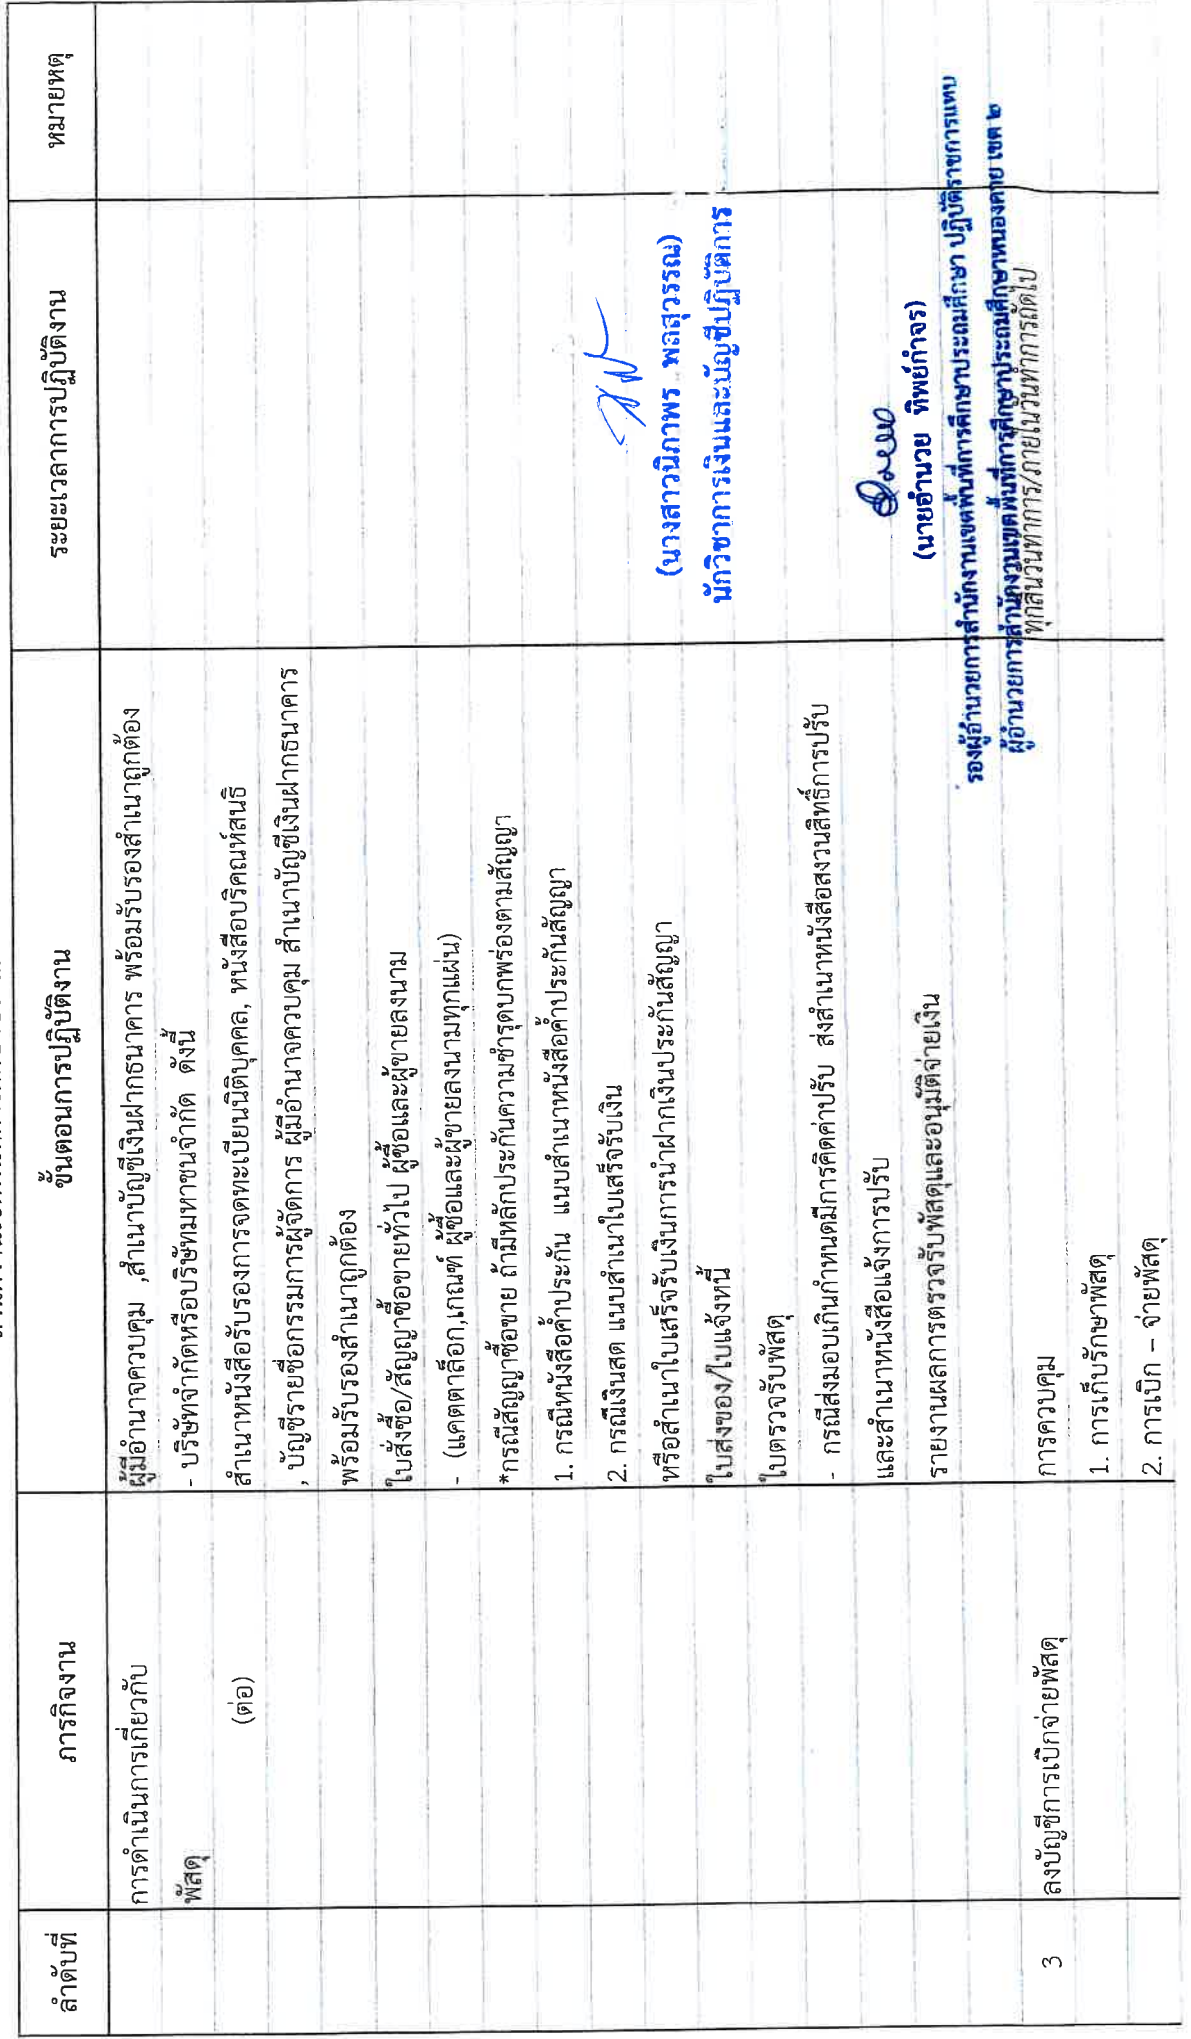 ลำดับที่ ภารกิจงาน ขั้นตอนการปฏิบัติงาน ระยะเวลาการปฏิบัติงาน หมายเหตุ
การดำเนินการเกี่ยวกับ ผู้มีอำนาจควบคุม ,สำเนาบัญชีเงินฝากธนาคาร พร้อมรับรองสำเนาถูกต้อง
พัสดุ - บริษัทจำกัดหรือบริษัทมหาชนจำกัด ดังนี้
(ต่อ) สำเนาหนังสือรับรองการจดทะเบียนนิติบุคคล, หนังสือบริคณห์สนธิ
, บัญชีรายชื่อกรรมการผู้จัดการ ผู้มีอำนาจควบคุม สำเนาบัญชีเงินฝากธนาคาร
พร้อมรับรองสำเนาถูกต้อง
ใบสั่งซื้อ/สัญญาซื้อขายทั่วไป ผู้ซื้อและผู้ขายลงนาม
- (แคตตาล็อก,เกณฑ์ ผู้ซื้อและผู้ขายลงนามทุกแผ่น)
*กรณีสัญญาซื้อขาย ถ้ามีหลักประกันความชำรุดบกพร่องตามสัญญา
1. กรณีหนังสือค้ำประกัน แนบสำเนาหนังสือค้ำประกันสัญญา
2. กรณีเงินสด แนบสำเนาใบเสร็จรับเงิน
หรือสำเนาใบเสร็จรับเงินการนำฝากเงินประกันสัญญา
(นางสาวนิภาพร พลสุวรรณ)
ใบส่งของ/ใบแจ้งหนี้
นักวิชาการเงินและบัญชีปฏิบัติการ
ใบตรวจรับพัสดุ
- กรณีส่งมอบเกินกำหนดมีการคิดค่าปรับ ส่งสำเนาหนังสือสงวนสิทธิ์การปรับ
และสำเนาหนังสือแจ้งการปรับ
รายงานผลการตรวจรับพัสดุและอนุมัติจ่ายเงิน
(นายอำนวย ทิพย์กำจร)
รองผู้อำนวยการสำนักงานเขตพื้นที่การศึกษาประถมศึกษา ปฏิบัติราชการแทน
ผู้อำนวยการสำนักงานเขตพื้นที่การศึกษาประถมศึกษาหนองคาย เขต ๒
3 ลงบัญชีการเบิกจ่ายพัสดุ การควบคุม ทุกสิ้นวันทำการ/ภายในวันทำการถัดไป
1. การเก็บรักษาพัสดุ
2. การเบิก – จ่ายพัสดุ